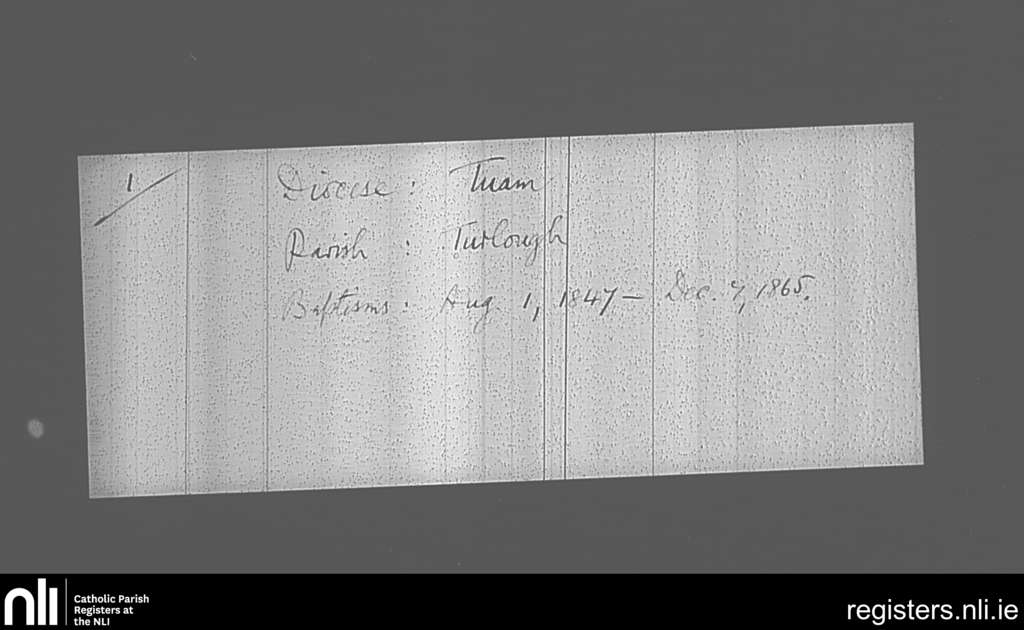 1/
Diocese : Tuam
Parish : Turlough
Baptisms : Aug. 1, 1847 - Dec. 7, 1865.
nli
Catholic Parish
Registers at
the NLI
registers.nli.ie